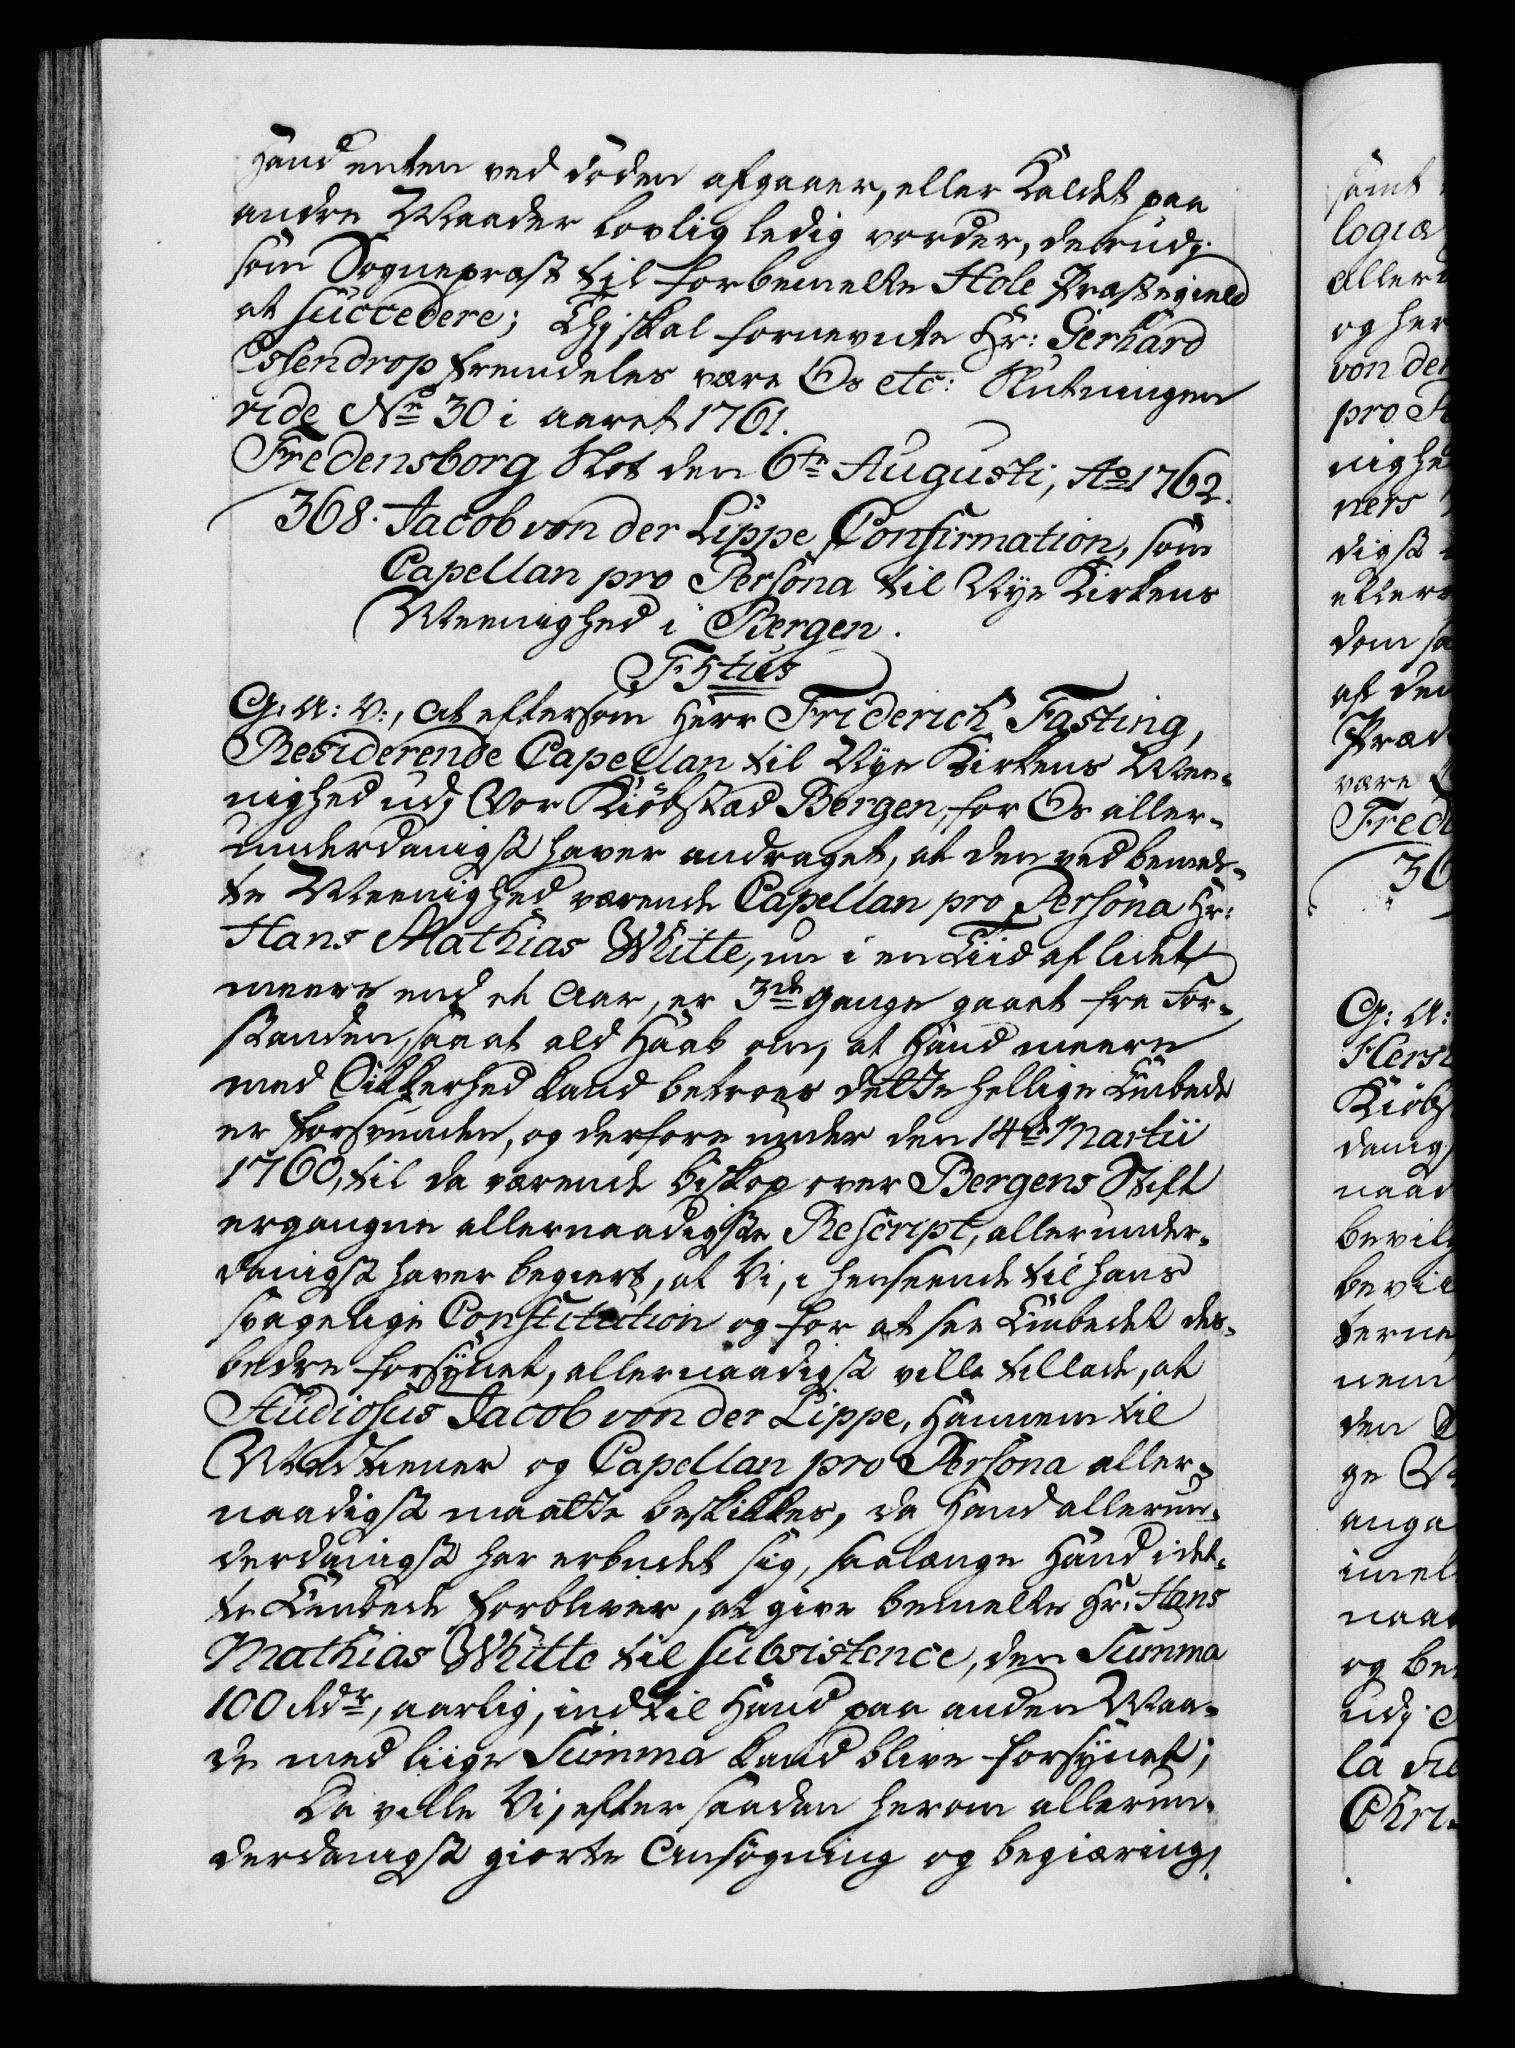 Hand enten ved döden afgaaer, eller Kaldet paa
andre Maader lovlig ledig vorder, derudj
som Sognepræst til forbemelte Hole Præstegield
at succedere; Thj skal fornevnte Hr: Gerhard
Essendrop fremdeles være Os etc: Slutningen
vide No 30 i aaret 1761.
Fredensborg Slot den 6te Augusti, Ao 1762.
368. Jacob von der Lippe Confirmation, som
Capellan pro Persona til Nye Kirkens
Meenighed i Bergen.
F 5tus
G: A: V:, at eftersom Herr Friderich Fasting,
Residerende Capellan til Nye Kirkens Mee-
nighed udj Vor Kiöbstad Bergen, for Os aller-
underdanigst haver andraget, at den ved bemel-
te Meenighed værende Capellan pro Persona Hr:
Hans Mathias Whitte, nu i en Tiid af lidet
meere end et Aar, er 3de gange gaaet fra For-
standen, saa at ald Haab om, at Hand meere
med Sikkerhed kand betroes dette hellige Embede
er forsvunden, og derfore under den 14de Martii
1760, til da værende biskop over Bergens Stift
ergangne allernaadigste Rescript, allerunder-
danigst haver begiert, at Vi, i henseende til hans
svagelige Constitution og for at see Embedet des-
bedre forsÿnet, allernaadigst ville tillade, at
Studiosus Jacob von der Lippe, Hannem til
Medtiener og Capellan pro Persona aller-
naadigst maatte beskikkes, da Hand allerun-
derdanigst har erbudet sig, saalænge Hand i det-
te Embede forbliver, at give bemelte Hr: Hans
Mathias Whitte til subsistence, den Summa
100 Rdr, aarlig, indtil Hand paa anden Maa-
de med liige Summa kand blive forsÿnet;
Da ville Vi, efter saadan herom allerun-
derdanigst giorte Ansögning og begiæring,